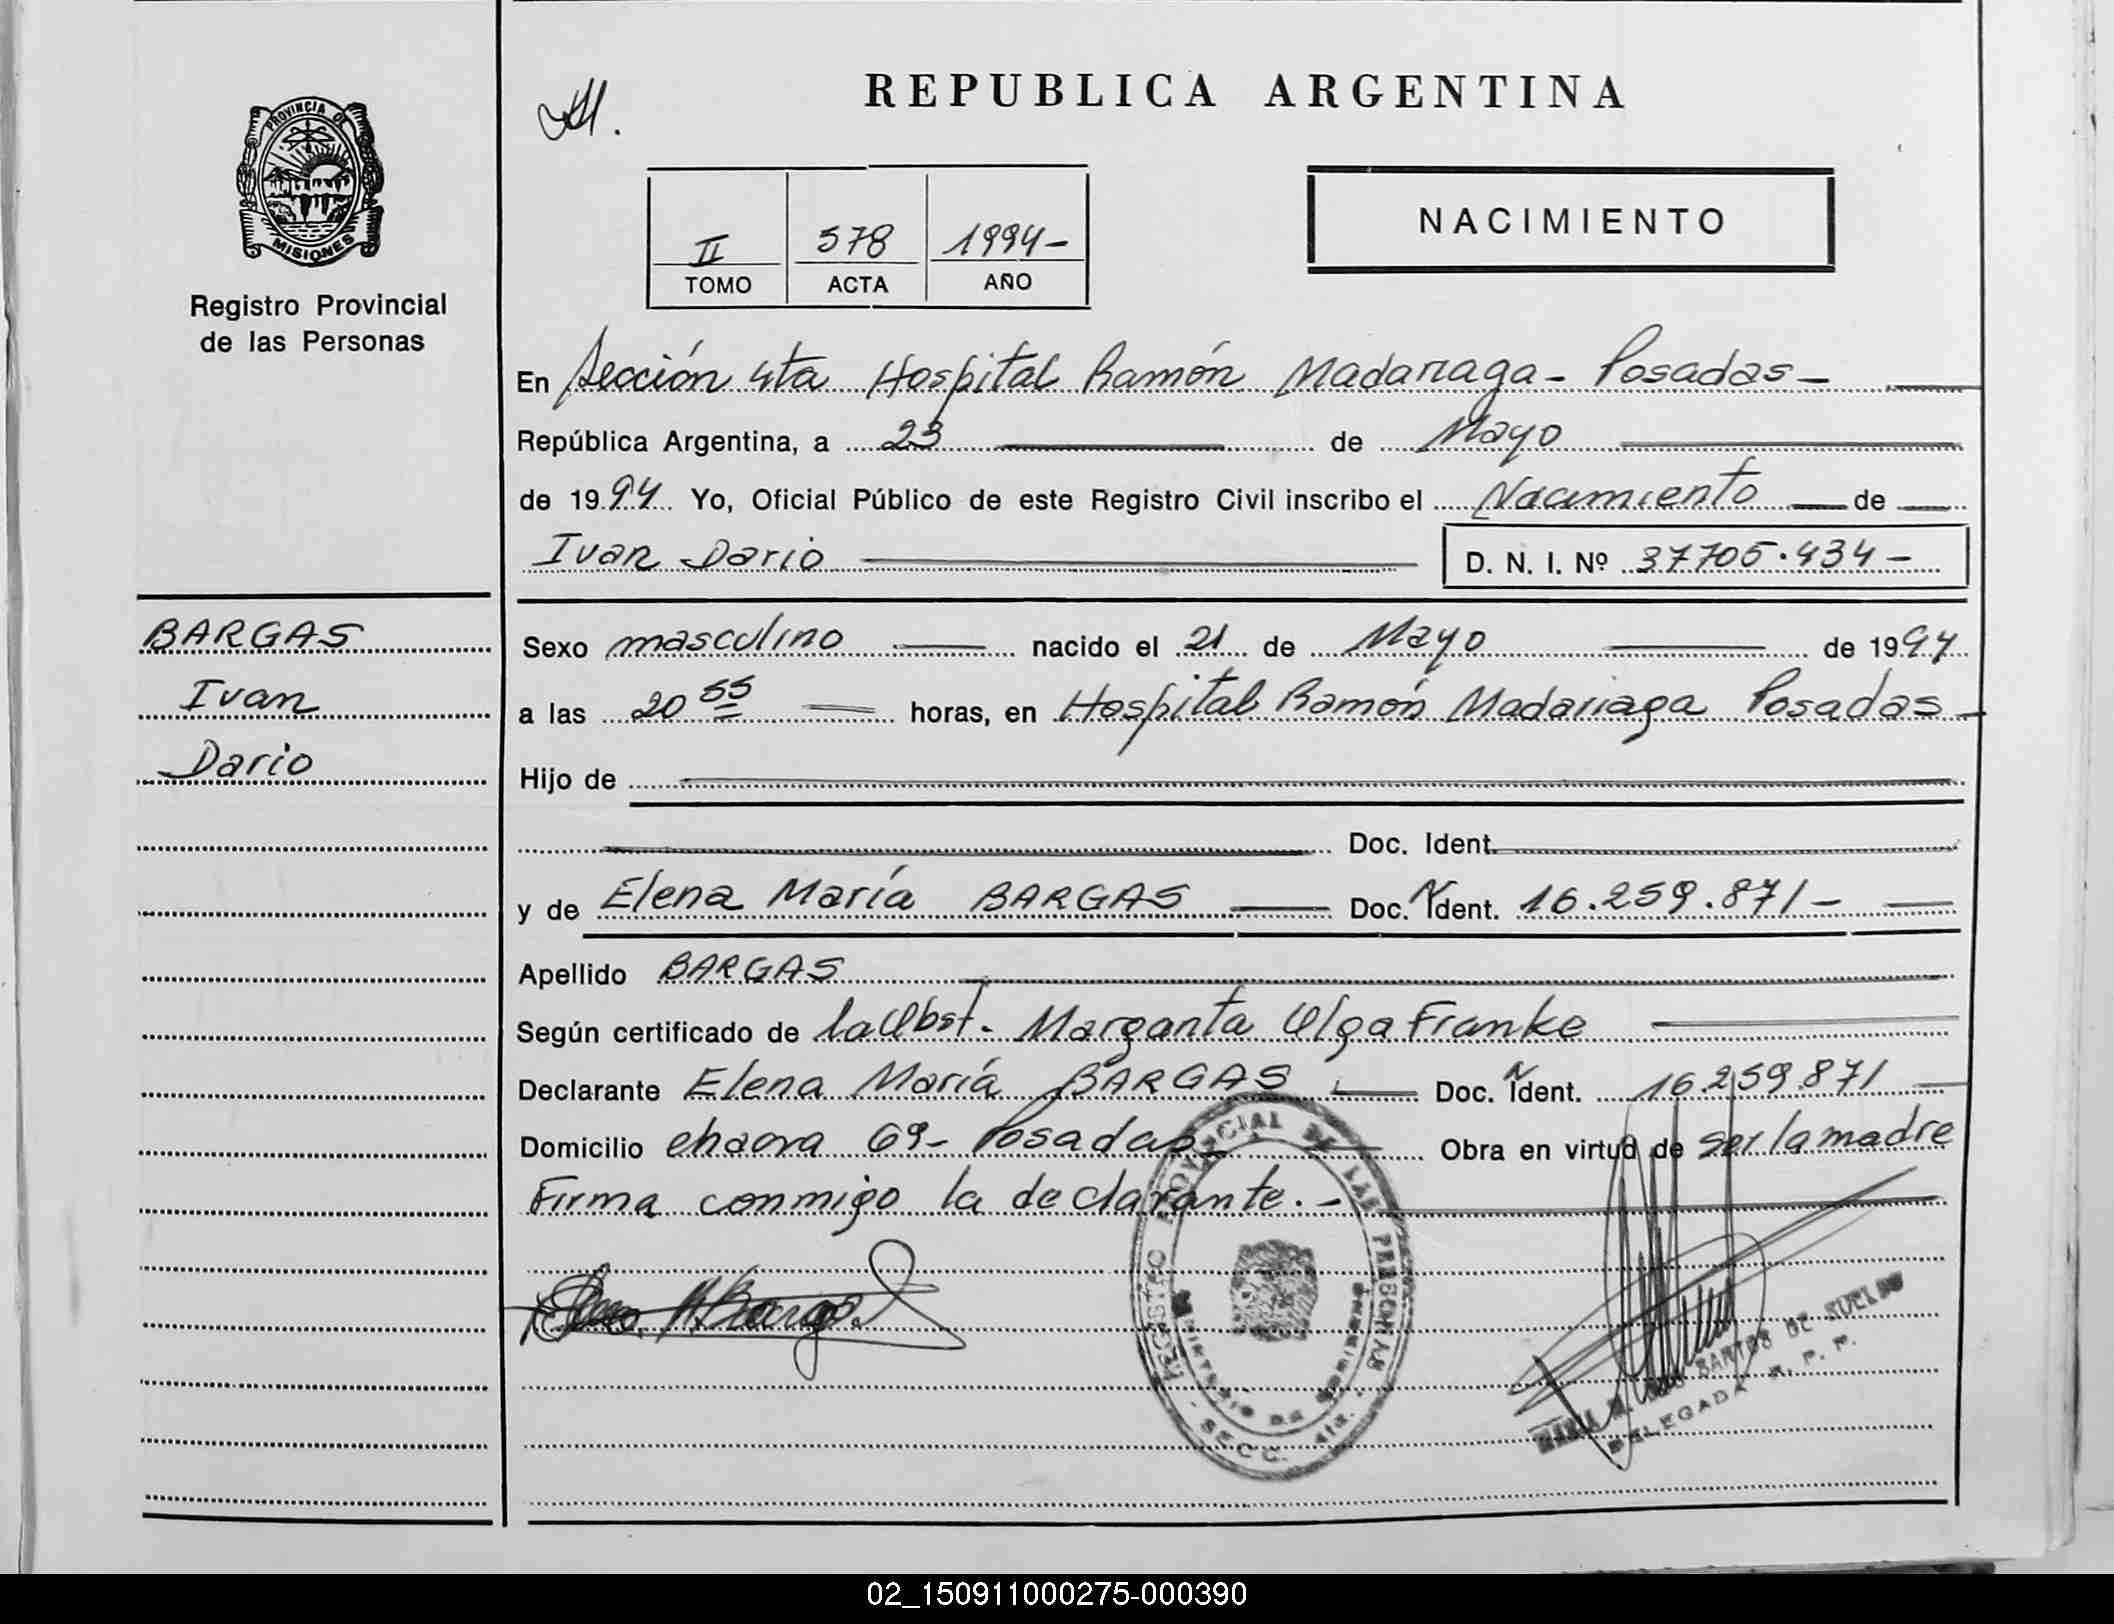 PROVINCIA DE
MISIONES
Registro Provincial
de las Personas
BARGAS
Ivan
Dario
REPUBLICA ARGENTINA
II 578 1994-
TOMO ACTA AÑO
NACIMIENTO
En Sección 4ta Hospital Ramón Madariaga - Posadas -
República Argentina, a 23 de Mayo
de 1994 Yo, Oficial Público de este Registro Civil inscribo el Nacimiento de
Ivan Dario D. N. I. Nº 37705.434-
Sexo masculino nacido el 21 de Mayo de 1994
a las 20 55 horas, en Hospital Ramón Madariaga Posadas
Hijo de
Doc. Ident.
y de Elena María BARGAS Doc. Ident. 16.259.871-
Apellido BARGAS
Según certificado de la Obst. Margarita Olga Franke
Declarante Elena María BARGAS Doc. Ident. 16.259.871
Domicilio chacra 69- Posadas Obra en virtud de ser la madre
Firma conmigo la declarante.-
Elena M. Bargas
REGISTRO PROVINCIAL DE LAS PERSONAS
MINISTERIO DE GOBIERNO
- SECC. 4ta. -
MARIA SANTOS DE SUELDO
DELEGADA R. P. P.
02_150911000275-000390